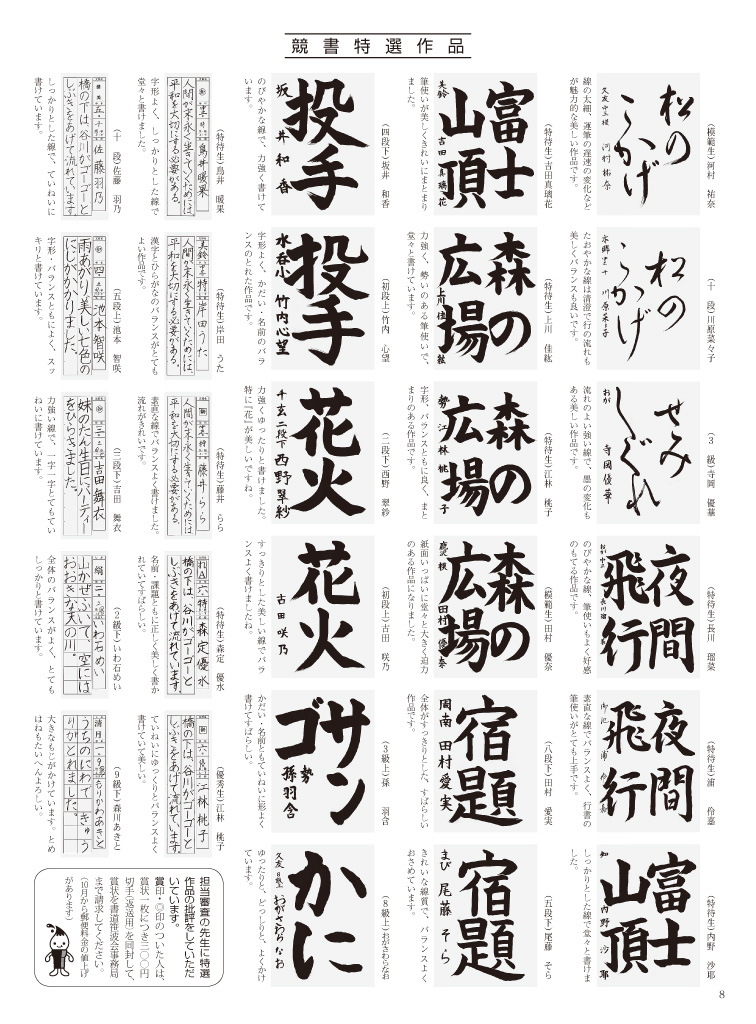 競書特選作品
松の
こかげ
久友 中三 模 河村 祐奈
(模範生)河村 祐奈
線の太細、運筆の遅速の変化など
が魅力的な美しい作品です。
松の
こかげ
(十 段)川原菜々子
たおやかな線は清澄で行の流れも
美しくバランスも良いです。
せみ
しぐれ
おが 寺岡優華
(3 級)寺岡 優華
流れのよい強い線で、墨の変化も
ある美しい作品です。
夜間
飛行
(特待生)長川 瑠菜
のびやかな線、筆使いもよく好感
のもてる作品です。
夜間
飛行
(特待生)浦 伶嘉
素直な線でバランスよく、行書の
筆使いがとても上手です。
富士
山頂
知 内野 沙耶
(特待生)内野 沙耶
しっかりとした線で堂々と書けま
した。
富士
山頂
美鈴 吉田真璃花
(特待生)吉田真璃花
筆使いが美しくきれいにまとまり
ました。
森の
広場
上川佳紘
(特待生)上川 佳紘
力強く、勢いのある筆使いで、
堂々と書けています。
森の
広場
勢 江林桃子
(特待生)江林 桃子
字形、バランスともに良く、まと
まりのある作品です。
森の
広場
鹿沢 模 田村優奈
(模範生)田村 優奈
紙面いっぱいに堂々と大きく迫力
のある作品になりました。
宿題
周南 田村愛実
(八段下)田村 愛実
全体がすっきりとした、すばらしい
作品です。
宿題
まび 尾藤そら
(五段下)尾藤 そら
きれいな線質で、バランスよく
おさめています。
投手
坂井和香
(四段下)坂井 和香
のびやかな線で、力強く書けて
います。
投手
水呑小 竹内心望
(初段上)竹内 心望
字形よく、かだい・名前のバラ
ンスのとれた作品です。
花火
千玄 二段下 西野翠紗
(二段下)西野 翠紗
力強くゆったりと書けました。
特に『花』が美しいですね。
花火
古田咲乃
(初段上)古田 咲乃
すっきりとした美しい線でバラ
ンスよく書けましたね。
サン
ゴ
勢 孫羽含
(3級上)孫 羽含
かだい・名前ともていねいに形よく
書けてすばらしい。
かに
久友 8級上 おがさわらなお
(8級上)おがさわらなお
ゆったりと、どっしりと、よくかけ
ています。
鳥井暖果
人間が末永く生きていくためには、
平和を大切にする必要がある。
(特待生)鳥井 暖果
字形よく、しっかりとした線で
堂々と書けました。
美鈴 特 岸田うた
人間が末永く生きていくためには、
平和を大切にする必要がある。
(特待生)岸田 うた
漢字とひらがなのバランスがとても
よい作品です。
藤井らら
人間が末永く生きていくためには
平和を大切にする必要がある。
(特待生)藤井 らら
素直な線でバランスよく書けました。
流れがきれいです。
れA 六 特 森定優水
橋の下は、谷川がゴーゴーと
しぶきをあげて流れています。
(特待生)森定 優水
名前・課題ともに正しく美しく書か
れていてすばらしい。
勢 六 江林桃子
橋の下は、谷川がゴーゴーと
しぶきをあげて流れています。
(優秀生)江林 桃子
ていねいにゆっくりとバランスよく
書けていて美しい。
佐藤羽乃
橋の下は、谷川がゴーゴーと
しぶきをあげて流れています。
(十 段)佐藤 羽乃
しっかりとした線で、ていねいに
書けています。
四 池本智咲
雨あがり、美しい七色の
にじがかかりました。
(五段下)池本 智咲
字形・バランスともによく、スッ
キリと書けています。
三 吉田舞衣
妹のたん生日にパーティー
をひらきました。
(二段下)吉田 舞衣
力強い線で、一字一字とてもてい
ねいに書けています。
いわ石めい
山かぜふいて 空には
おおきな天の川。
(2級下)いわ石めい
全体のバランスがよく、とても
しっかりと書けています。
満月 一 9級 もりかわあきと
うちのにわで、きゅう
りがとれました。
(9級下)森川あきと
大きなもじがかけています。とめ
はねもたいへんよろしい。
担当審査の先生に特選
作品の批評をしていただ
いています。
賞印・◎印のついた人は、
賞状一枚につき三〇〇円
切手(返送用)を同封して、
賞状を書道笹波会事務局
まで請求してください。
(10月から郵便料金の値上げ
があります)
8